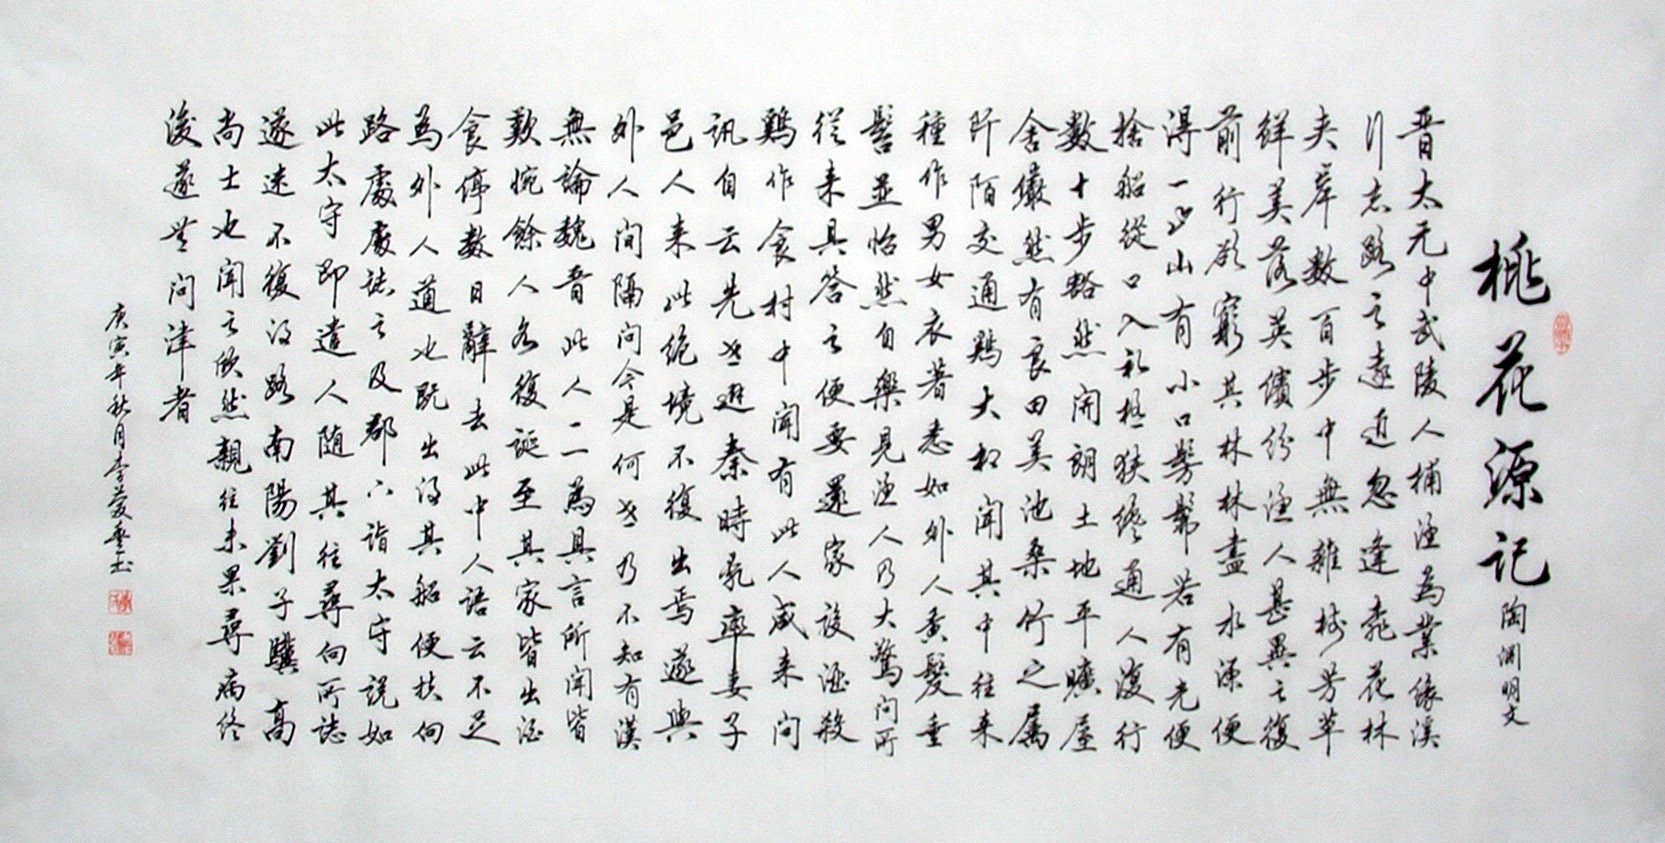 桃花源记 陶渊明文
晋太元中武陵人捕渔為業缘溪
行忘路之遠近忽逢桃花林
夹岸数百步中無雜樹芳草
鲜美落英缤纷渔人甚異之復
前行欲窮其林林盡水源便
得一山山有小口髣髴若有光便
捨船從口入初極狭纔通人復行
数十步豁然開朗土地平曠屋
舍儼然有良田美池桑竹之属
阡陌交通鷄犬相聞其中往来
種作男女衣著悉如外人黄髮垂
髫並怡然自樂見渔人乃大驚问所
從来具答之便要還家設酒殺
鷄作食村中聞有此人咸来问
訊自云先世避秦時乱率妻子
邑人来此绝境不復出焉遂與
外人间隔问今是何世乃不知有漢
無論魏晋此人一一為具言所聞皆
歎惋餘人各復延至其家皆出酒
食停数日辭去此中人語云不足
為外人道也既出得其船便扶向
路處處誌之及郡下詣太守説如
此太守即遣人随其往尋向所誌
遂迷不復得路南陽劉子驥高
尚士也聞之欣然親往未果尋病终
後遂無问津者
庚寅年秋月李爱书